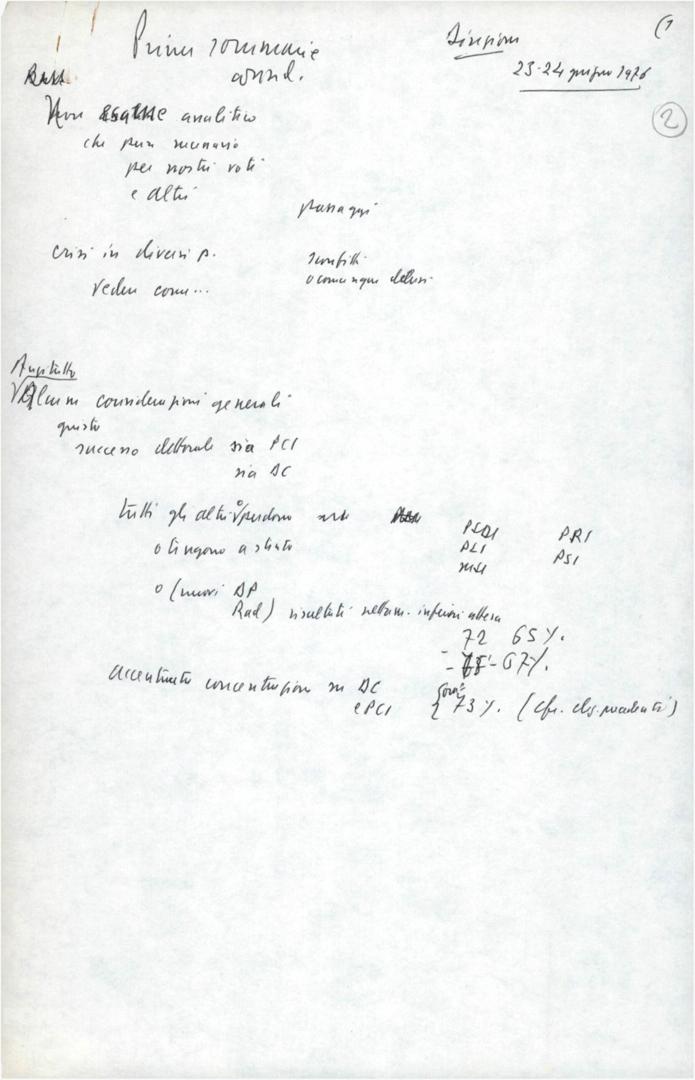 (1
Prime sommarie
consid.
Direzione
23-24 giugno 1976
2
Non esame analitico
che pure necessario
per nostri voti
e altri
passaggi
crisi in diversi p.
sconfitti
o comunque delusi
Vedere come...
Anzitutto
Alcune considerazioni generali
questo
successo elettorale sia PCI
sia DC
tutti gli altri o perdono
PSDI PRI
o tengono a stento
PLI PSI
MSI
o (nuovi DP
Rad) risultati nettam. inferiori attesa
72 65%.
- 67%.
accentuata concentrazione su DC
e PCI
73%. (cfr. elez. precedenti)